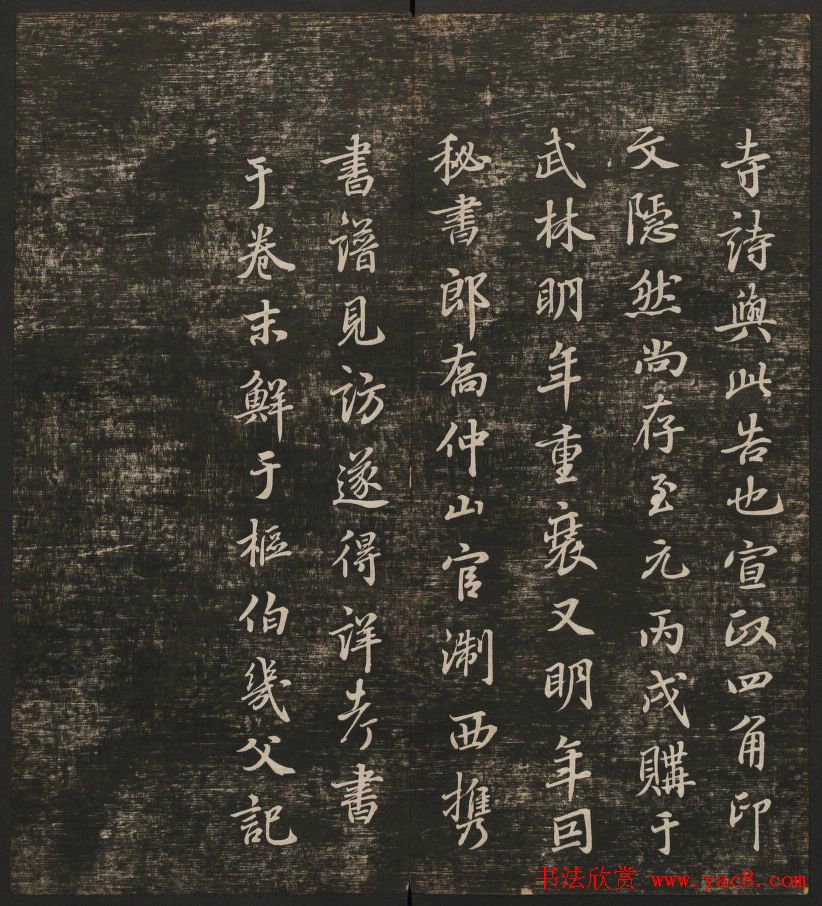 寺詩與此告也宣政四角印
文隱然尚存至元丙戌購于
武林明年重裝又明年回
秘書郎喬仲山官淛西携
書譜見訪遂得詳考書
于卷末鮮于樞伯幾父記
书法欣赏 www.yac8.com